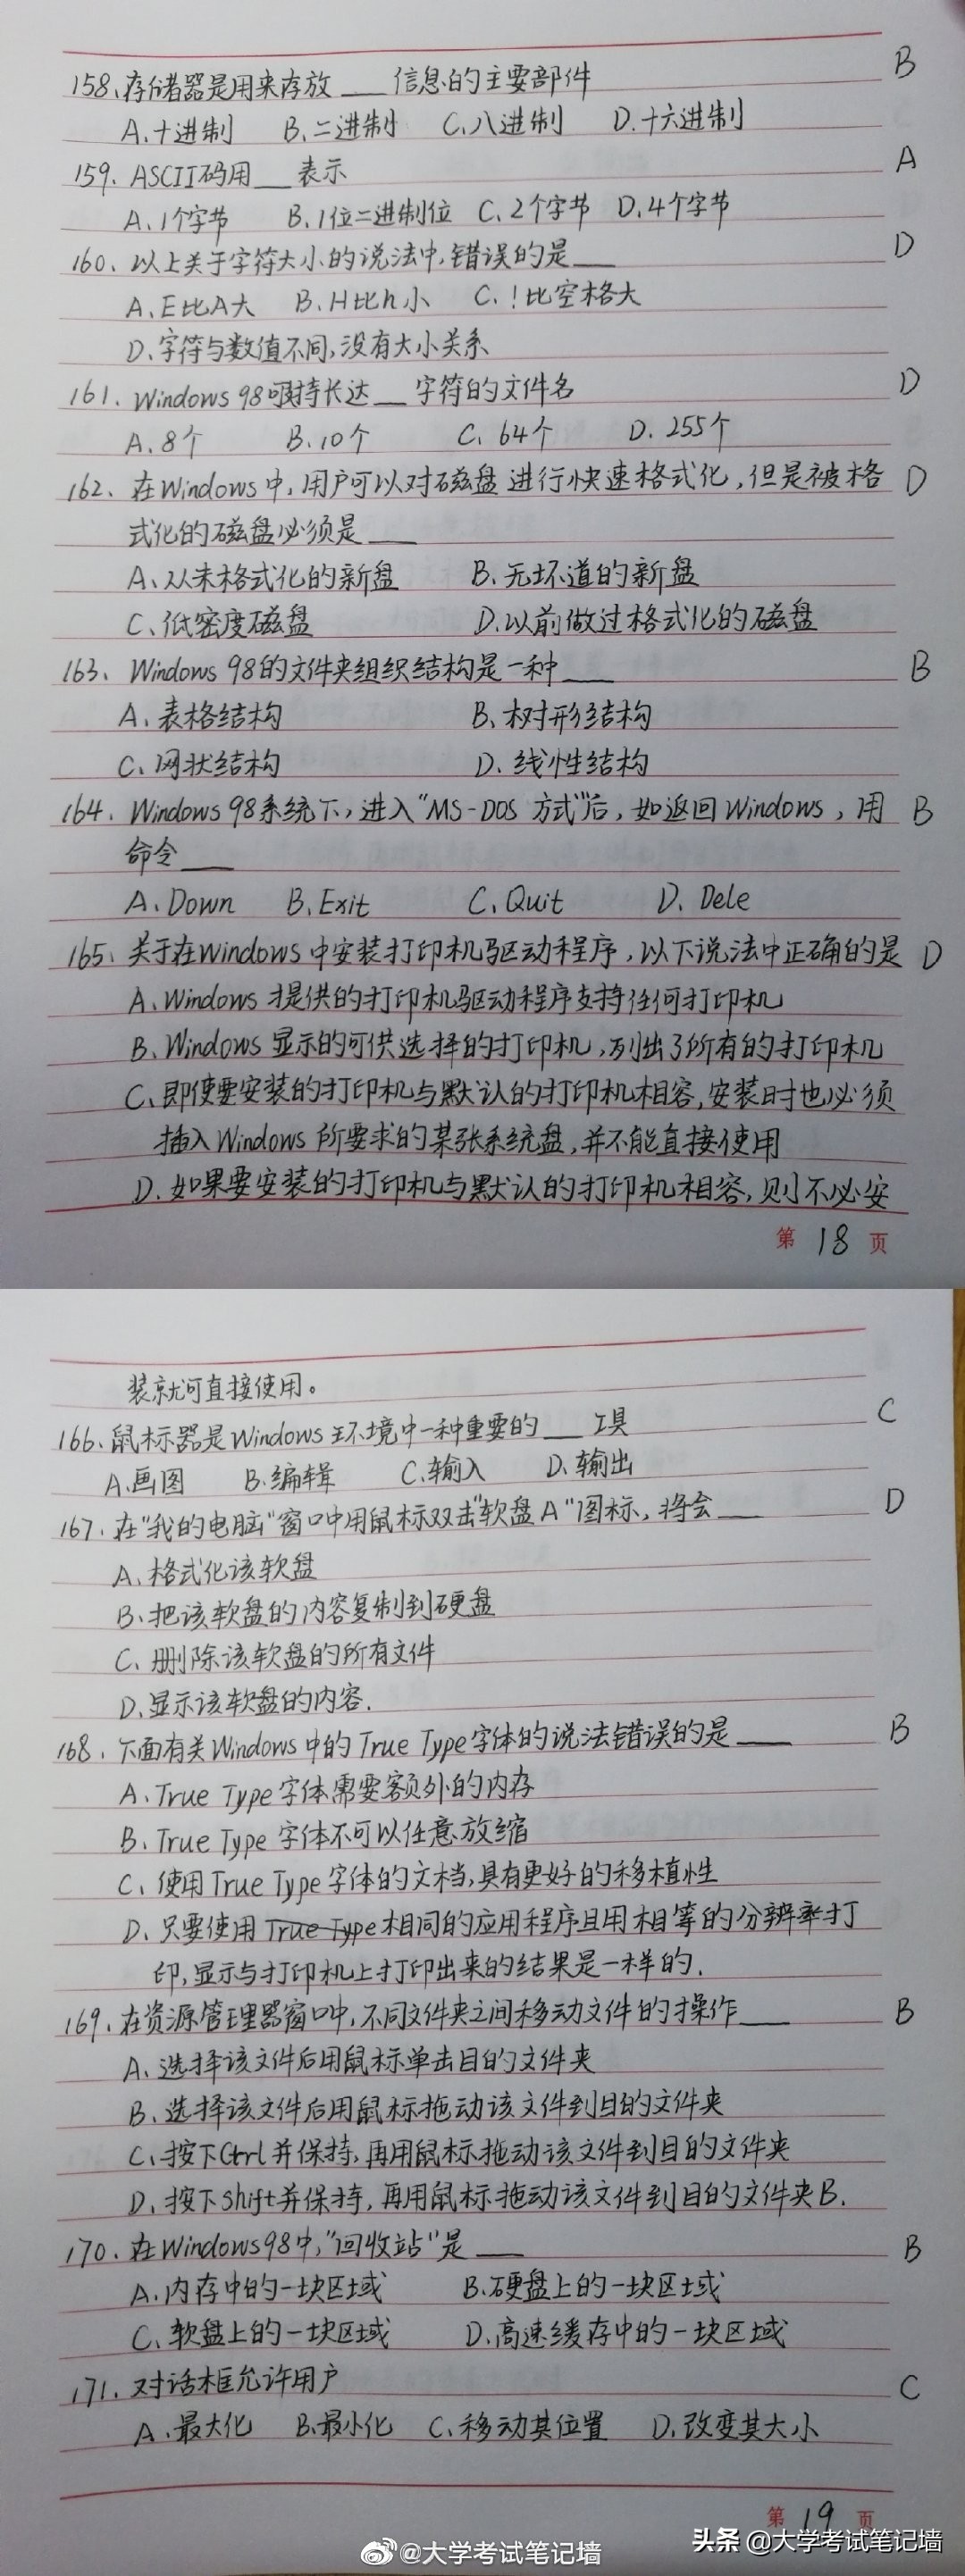 158、存储器是用来存放___信息的主要部件 B
A.十进制 B.二进制 C.八进制 D.十六进制
159. ASCII码用__表示 A
A.1个字节 B.1位二进制位 C.2个字节 D.4个字节
160、以上关于字符大小的说法中,错误的是___ D
A.E比A大 B.H比h小 C.!比空格大
D.字符与数值不同,没有大小关系
161. Windows 98可支持长达__字符的文件名 D
A.8个 B.10个 C.64个 D.255个
162、在Windows中,用户可以对磁盘进行快速格式化,但是被格 D
式化的磁盘必须是___
A、从未格式化的新盘 B、无坏道的新盘
C、低密度磁盘 D.以前做过格式化的磁盘
163、Windows 98的文件夹组织结构是一种___ B
A、表格结构 B、树形结构
C、网状结构 D、线性结构
164. Windows 98系统下,进入"MS-DOS 方式"后,如返回Windows,用 B
命令___
A、Down B.Exit C.Quit D.Dele
165、关于在Windows中安装打印机驱动程序,以下说法中正确的是 D
A、Windows提供的打印机驱动程序支持任何打印机
B、Windows显示的可供选择的打印机,列出了所有的打印机
C、即使要安装的打印机与默认的打印机相容,安装时也必须
插入Windows所要求的某张系统盘,并不能直接使用
D.如果要安装的打印机与默认的打印机相容,则不必安
第 18 页
装就可直接使用。
166、鼠标器是Windows环境中一种重要的___工具 C
A.画图 B.编辑 C.输入 D.输出
167、在"我的电脑"窗口中用鼠标双击"软盘A"图标,将会___ D
A、格式化该软盘
B、把该软盘的内容复制到硬盘
C、删除该软盘的所有文件
D.显示该软盘的内容.
168、下面有关Windows中的True Type字体的说法错误的是___ B
A、True Type字体需要额外的内存
B、True Type 字体不可以任意放缩
C、使用True Type字体的文档,具有更好的移植性
D.只要使用True Type相同的应用程序且用相等的分辨率打
印,显示与打印机上打印出来的结果是一样的.
169、在资源管理器窗口中,不同文件夹之间移动文件的操作___ B
A、选择该文件后用鼠标单击目的文件夹
B、选择该文件后用鼠标拖动该文件到目的文件夹
C、按下Ctrl并保持,再用鼠标拖动该文件到目的文件夹
D、按下shift并保持,再用鼠标拖动该文件到目的文件夹B.
170、在Windows98中,"回收站"是___ B
A、内存中的一块区域 B.硬盘上的一块区域
C、软盘上的一块区域 D.高速缓存中的一块区域
171、对话框允许用户 C
A.最大化 B.最小化 C.移动其位置 D.改变其大小
第 19 页
@大学考试笔记墙
头条 @大学考试笔记墙